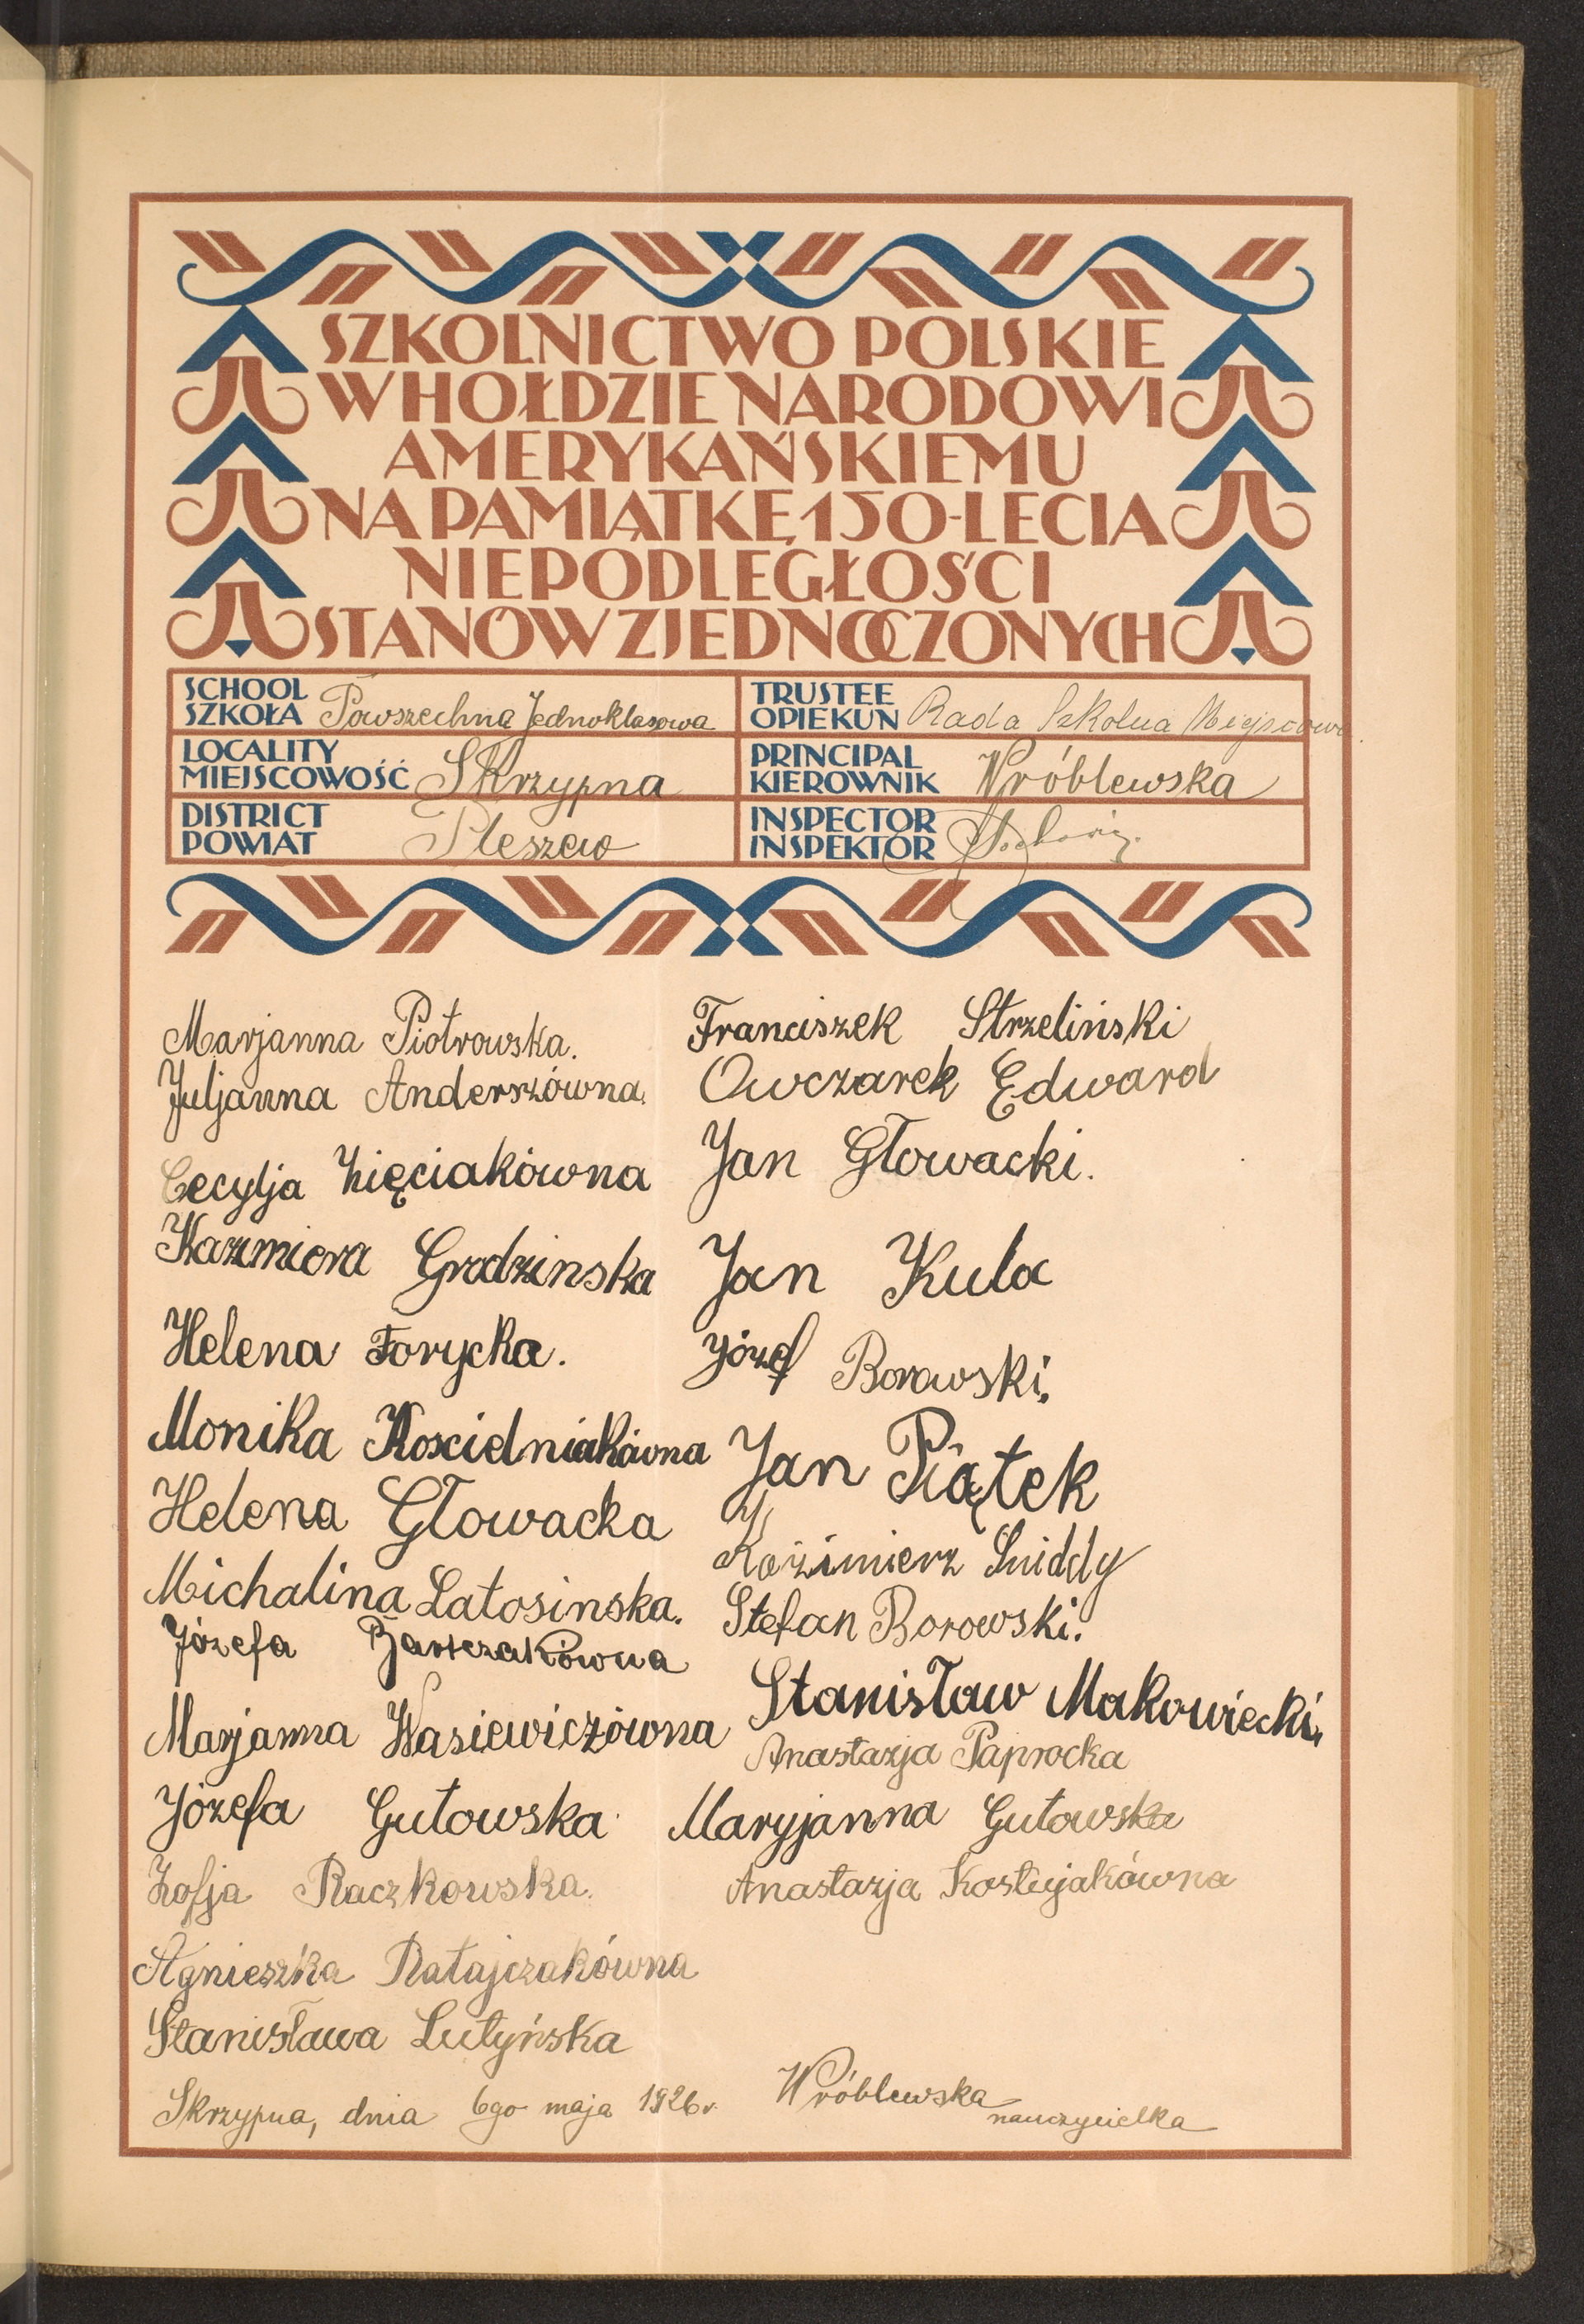 SZKOLNICTWO POLSKIE
W HOŁDZIE NARODOWI
AMERYKAŃSKIEMU
NA PAMIĄTKĘ 150-LECIA
NIEPODLEGŁOŚCI
STANÓW ZJEDNOCZONYCH
SCHOOL
SZKOŁA Powszechna Jednoklasowa
TRUSTEE
OPIEKUN Rada Szkolna Miejscowa
LOCALITY
MIEJSCOWOŚĆ Skrzypna
PRINCIPAL
KIEROWNIK Wróblewska
DISTRICT
POWIAT Pleszew
INSPECTOR
INSPEKTOR
Marjanna Piotrowska.
Juljanna Anderszówna.
Cecylja Zięciakówna
Kazimiera Grodzinska
Helena Forycka.
Monika Koscielniakówna
Helena Głowacka
Michalina Latosinska.
Józefa Banszczakówna
Marjanna Wasiewiczówna
Józefa Gutowska
Zofja Raczkowska.
Agnieszka Ratajczakówna
Stanisława Lutyńska
Franciszek Strzeliński
Owczarek Edward
Jan Głowacki.
Jan Kula
Józef Borowski.
Jan Piątek
Kazimierz Sniddy
Stefan Borowski.
Stanisław Makowiecki.
Anastazja Paprocka
Maryjanna Gutowska
Anastazja Kostujakówna
Skrzypna, dnia 6go maja 1926 r.
Wróblewska
nauczycielka